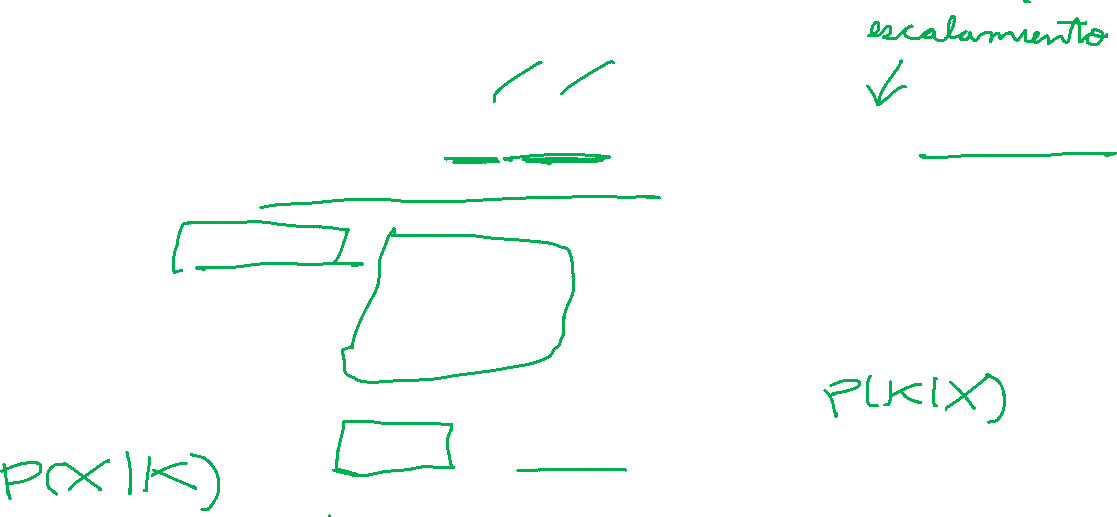 escalamiento
P(K|X)
P(X|K)